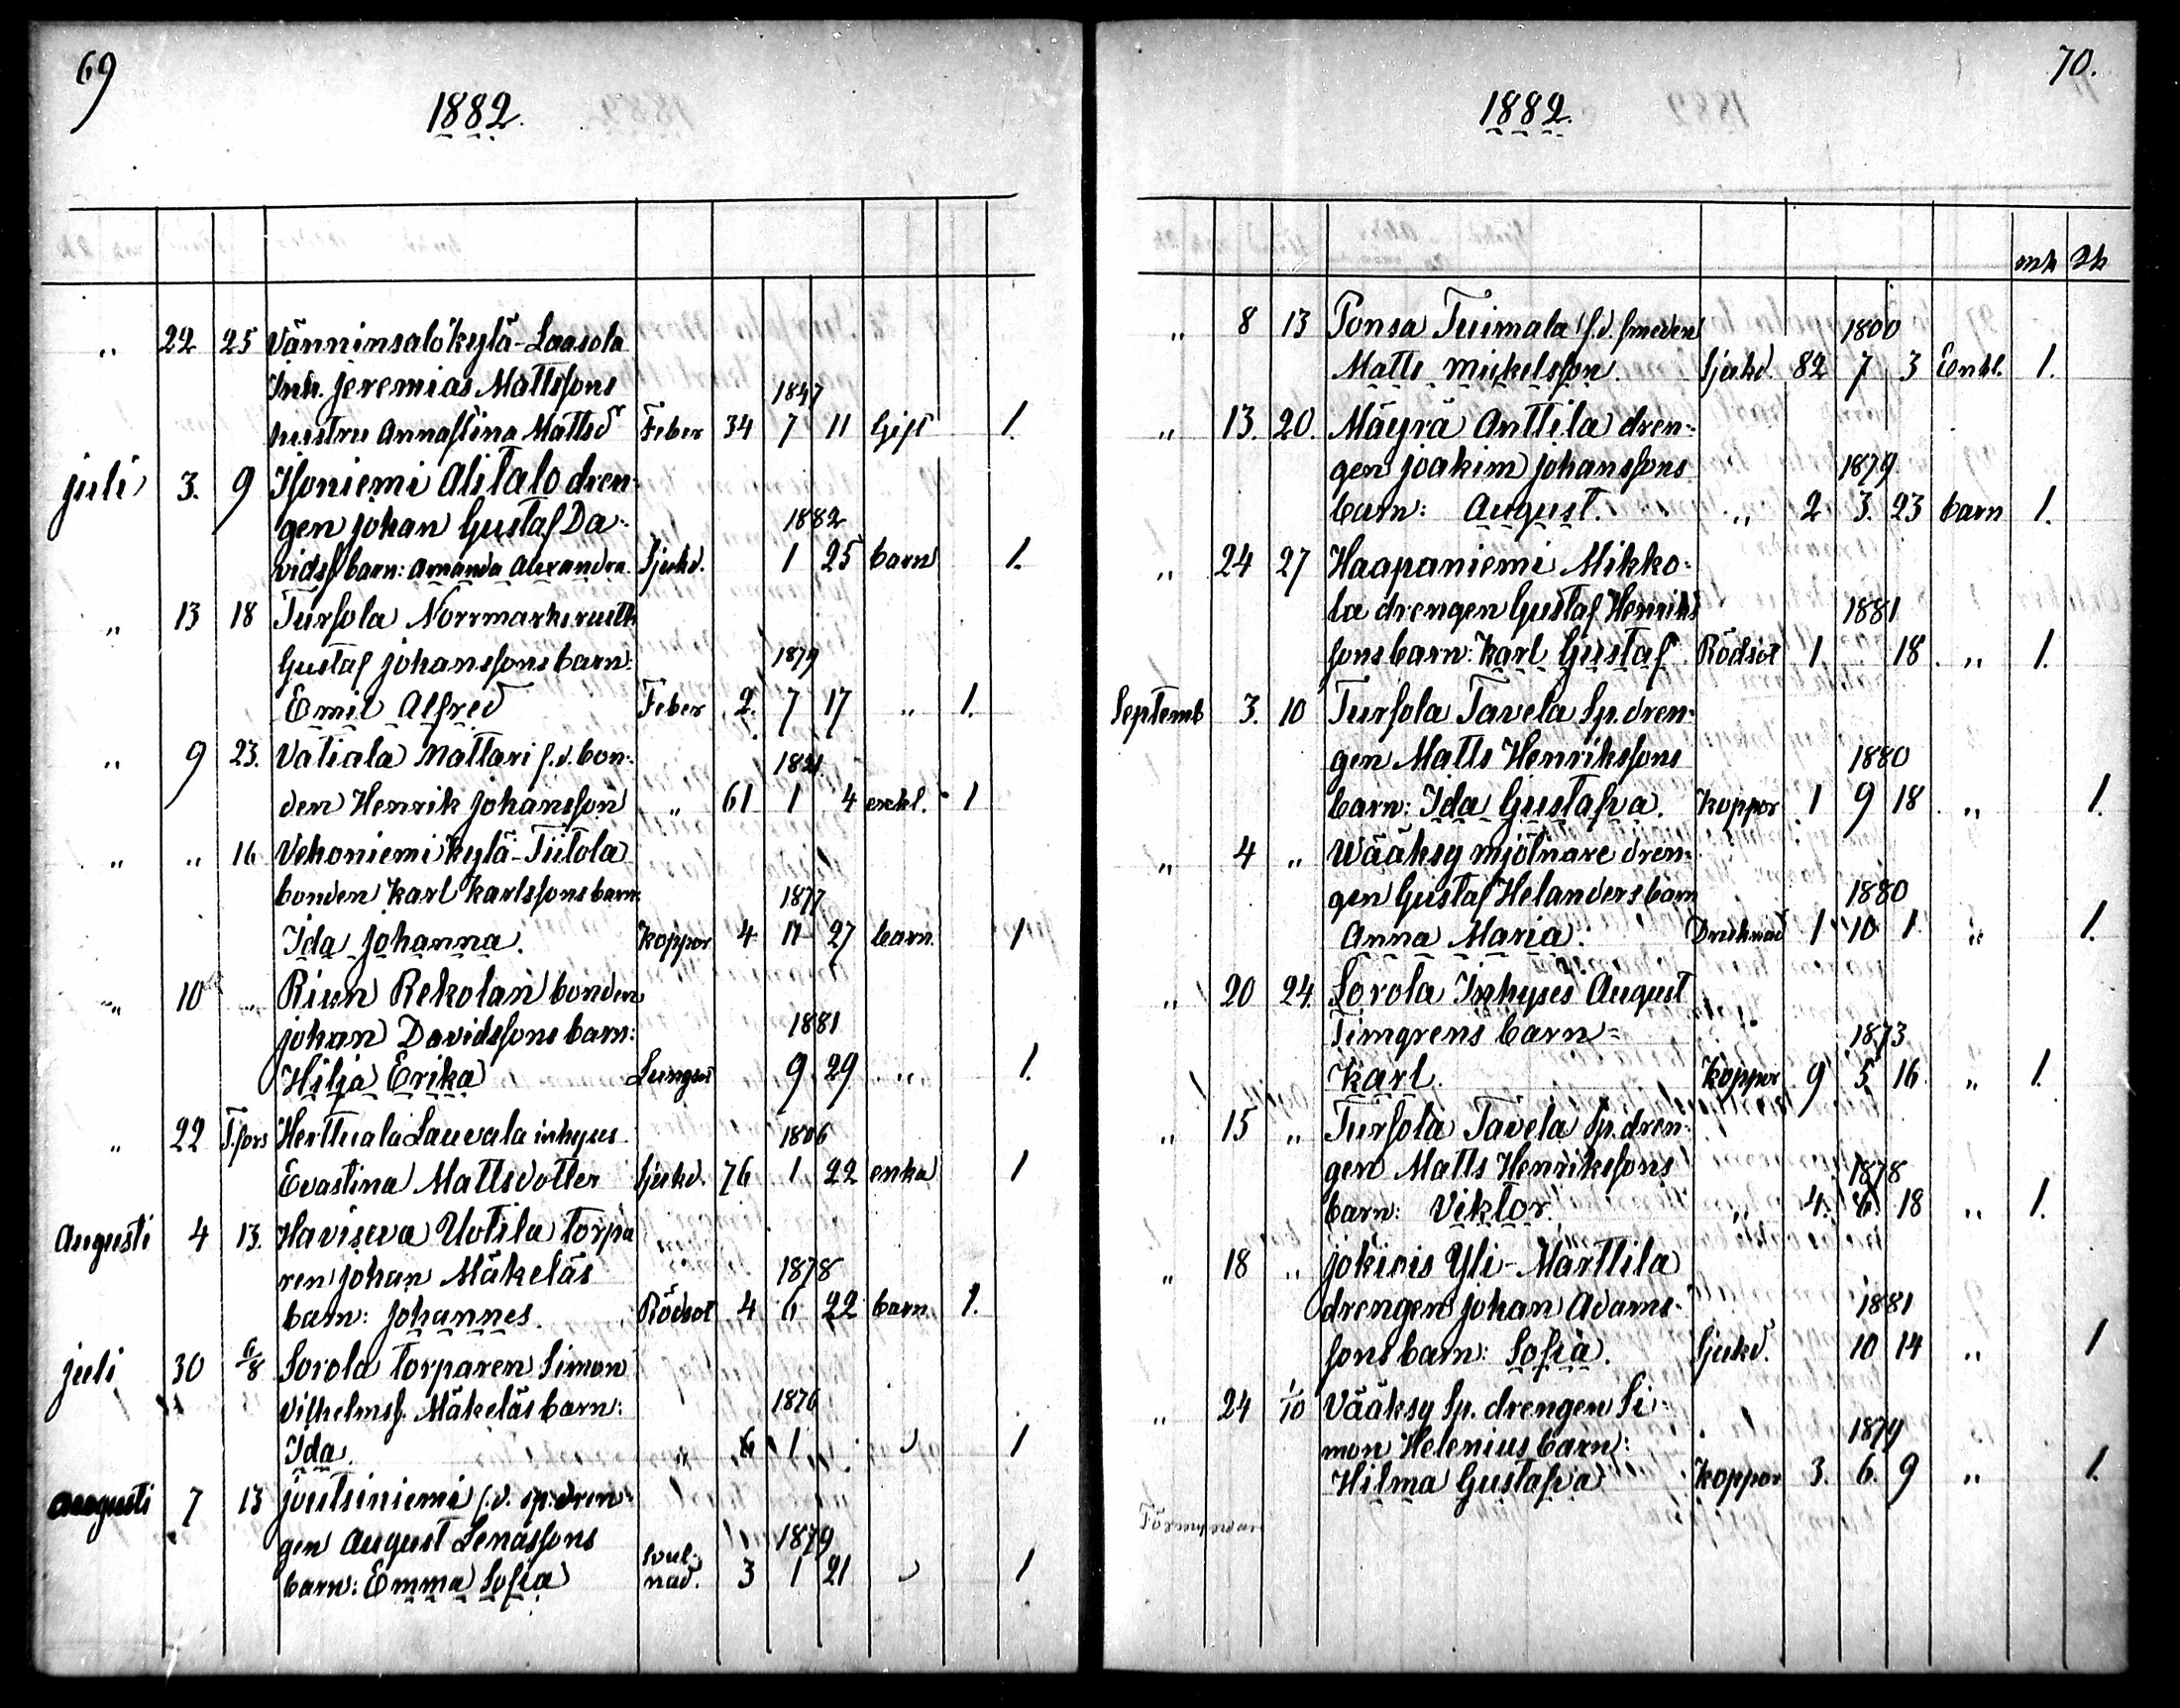 69
1882.
1847
" 22 25 Vänninsalo kylä-Laasola
Inh. Jeremias Mattssons 1847
hustru Annastina Mattsd Feber 34 7 11 Gift 1.
juli 3. 9 Isoniemi Alitalo dren-
gen Johan Gustaf Da- 1882
vidss barn: Amanda Alexandra. Sjukd. 1 25 barn 1.
" 13 18 Tursola Norrmarks rusth
Gustaf Johanssons barn: 1879
Emil Alfred Feber 2. 7 17 " 1.
" 9 23. Vatiala Mattari f.d. bon- 1821
den Henrik Johansson " 61 1 4 enkl. 1
" " 16 Vehoniemi kylä-Tiitola
bonden Karl Karlssons barn: 1877
Ida Johanna. Koppor 4 11 27 barn. 1
" 10 " Riun Rekolan bonden
Johan Davidssons barn: 1881
Hilja Erika Lungsot 9 29 " 1.
" 22 T.fors Herttuala Lauvala inhyses 1806
Evastina Mattsdotter Sjukd. 76 1 22 enka 1
Augusti 4 13. Haviseva Uotila torpa
ren Johan Mäkeläs 1878
barn: Johannes. Rödsot 4 6 22 barn 1.
juli 30 6/8 Sorola torparen Simon
Vilhelmss. Mäkeläs barn: 1876
Ida. " 6 1 " 1
Augusti 7 13 Joutsiniemi f.d. sp. dren-
gen August Lenassons 1879
barn: Emma Sofia Svul-nad. 3 1 21 " 1
70.
1882.
mk qk
" 8 13 Ponsa Tuimala f.d. smeden 1800
Matts Mickelsson. Sjukd. 82 7 3 Enkl. 1.
" 13. 20. Mäyrä Anttila dren-
gen Joakim Johanssons 1879
barn: August. " 2 3. 23 barn 1.
" 24 27 Haapaniemi Mikko-
la drengen Gustaf Henriks 1881
sons barn: Karl Gustaf Rödsot 1 18 " 1.
Septemb 3. 10 Tursola Tavela Sp. dren-
gen Matts Henrikssons 1880
barn: Ida Gustafva. Koppor 1 9 18 " 1.
" 4 " Wääksy mjölnare dren-
gen Gustaf Helanders barn 1880
Anna Maria. Druknad 1 10 1 " 1.
" 20 24. Sorola Inhyses August
Timgrens barn- 1873
Karl. Koppor 9 5 16 " 1.
" 15 " Tursola Tavela Sp. dren-
gen Matts Henrikssons 1878
barn: Viktor. " 4. 6. 18 " 1.
" 18 " Jokiois Yli-Marttila
drengen Johan Adams- 1881
sons barn: Sofia. Sjukd. 10 14 " 1
" 24 1/10 Vääksy Sp. drengen Si-
mon Helenius barn: 1879
Hilma Gustafva Koppor 3. 6. 9 " 1.